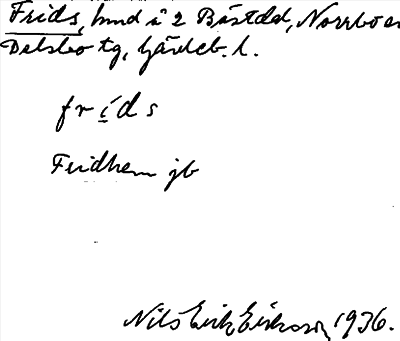 Frids, hmd i 2 Båstdal, Norrbo sn
Delsbo tg, Gävleb. l.
fríds
Fridhem jb
Nils Erik Eriksson 1936.